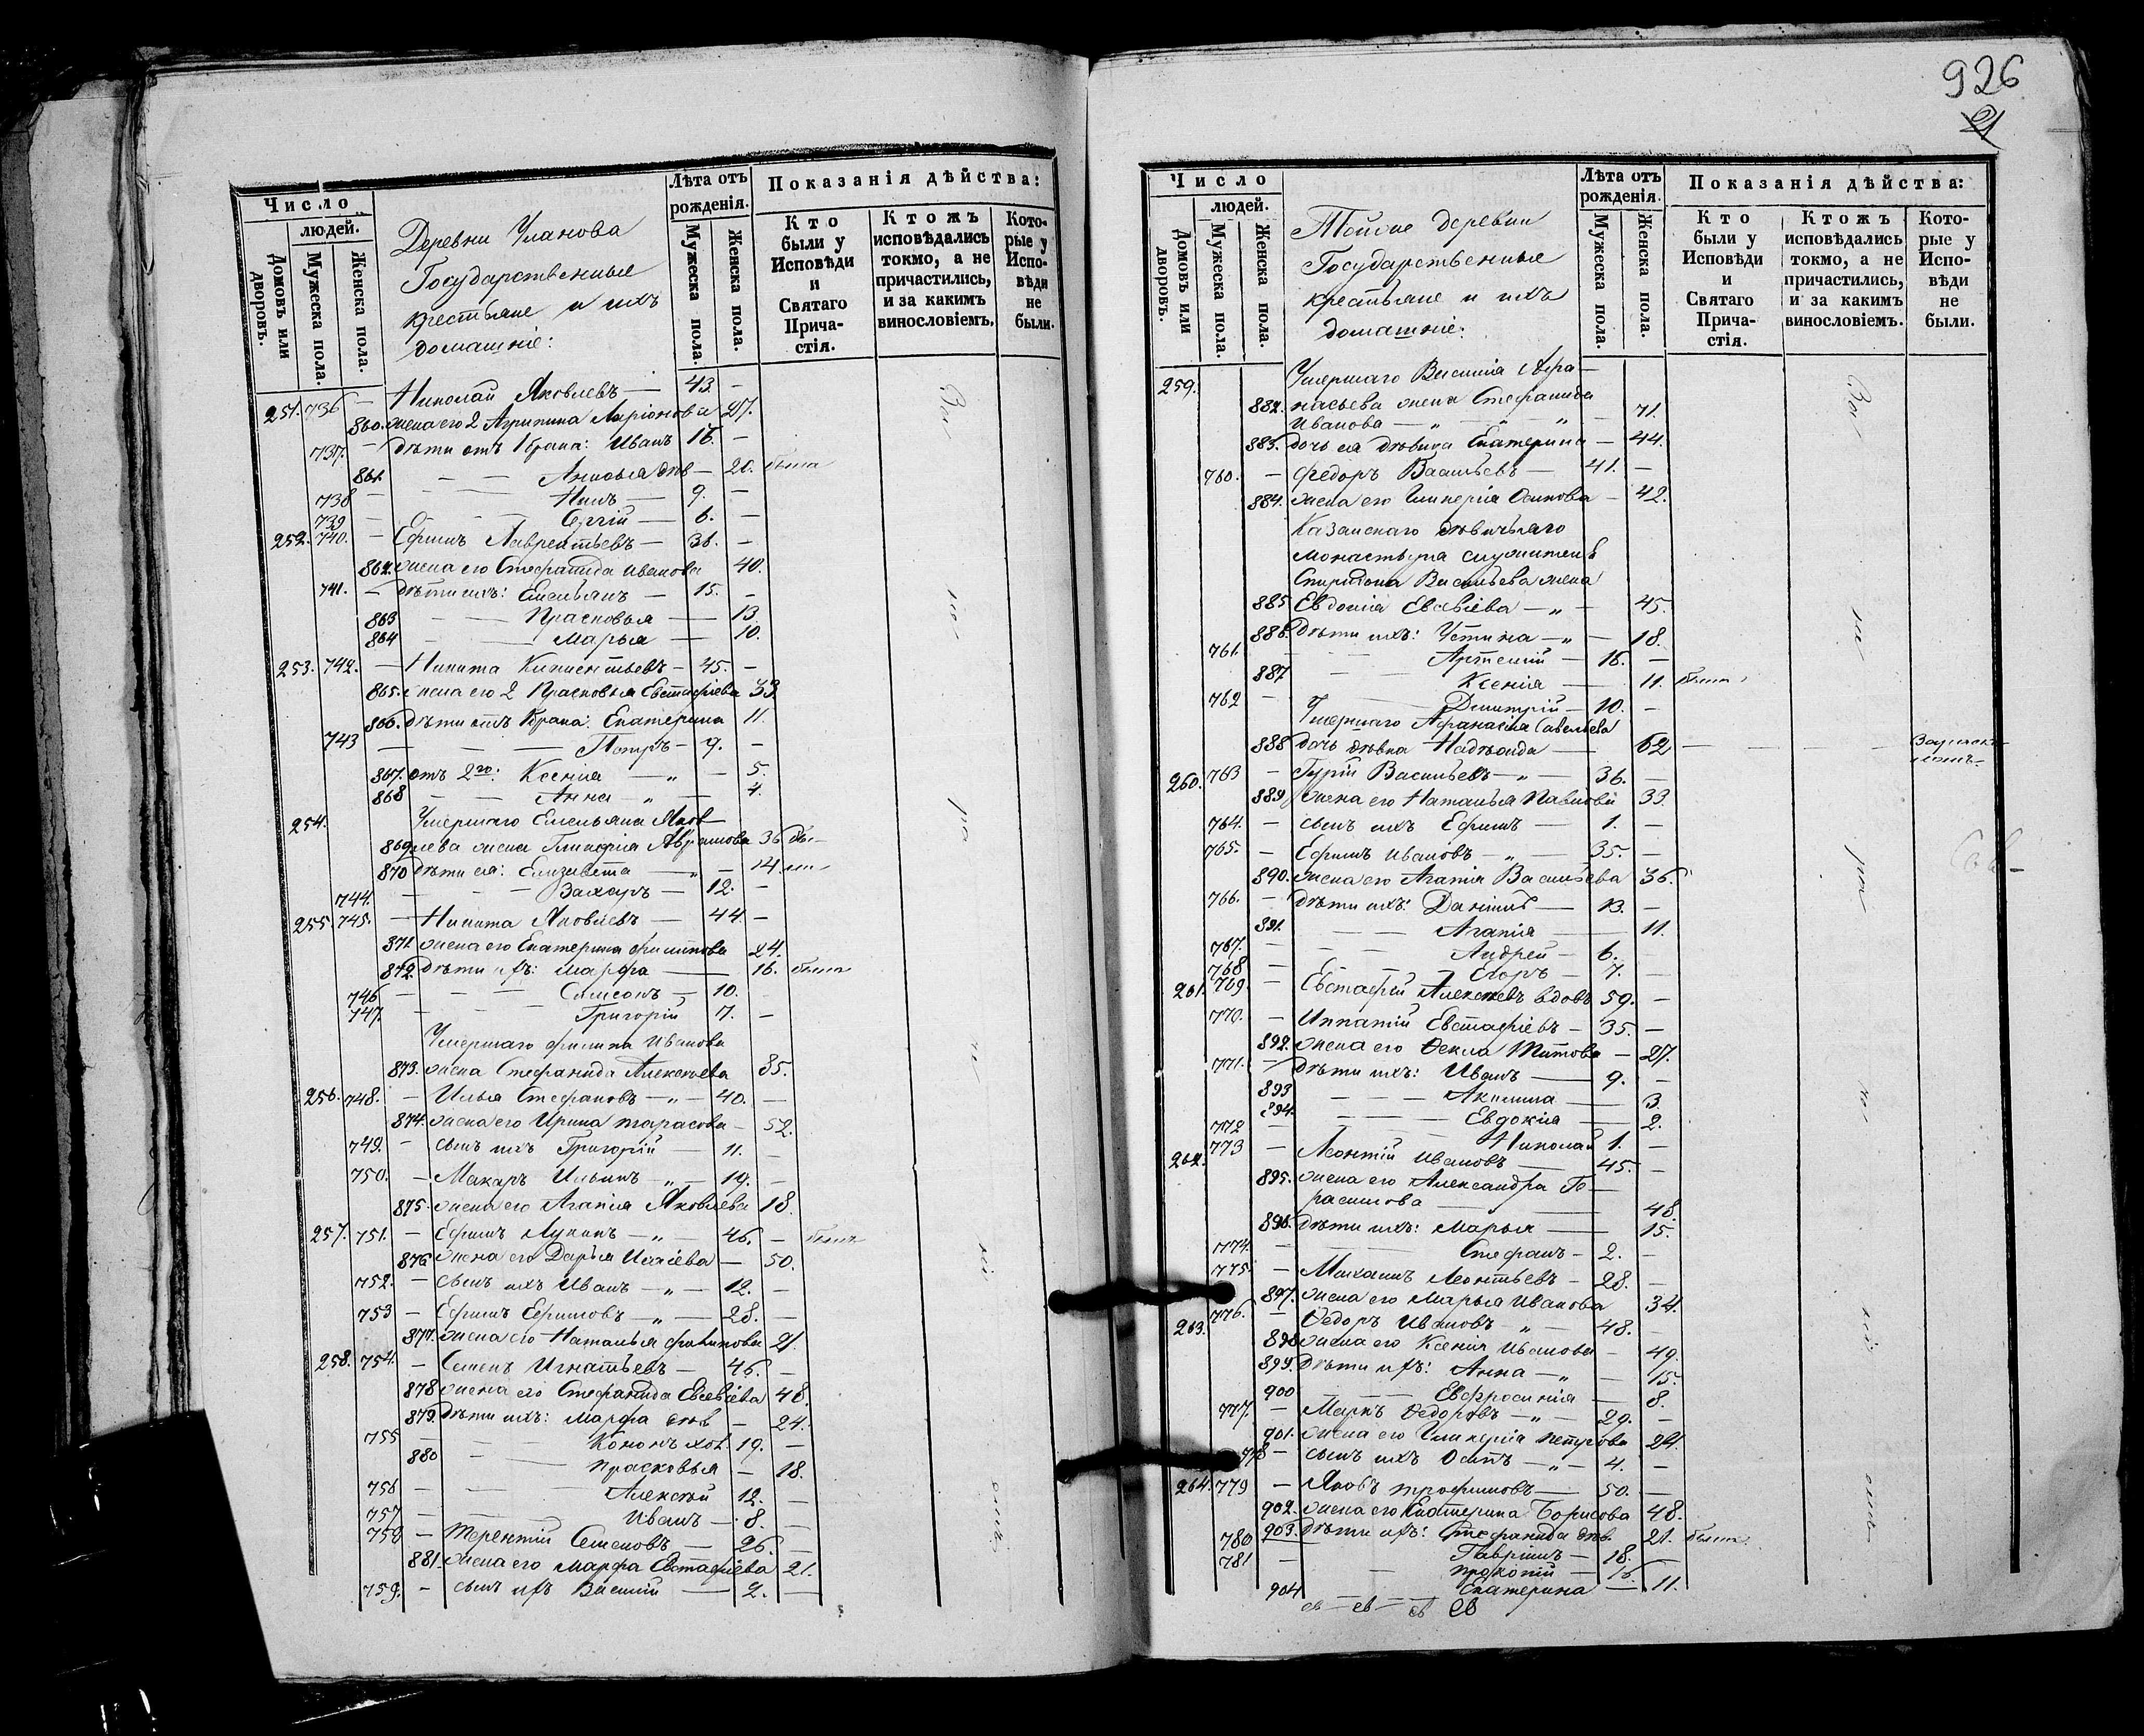 926
21
Число
людей.
Домовъ или дворовъ.
Мужеска пола.
Женска пола.
Деревни Уланова
Государственные
крестьяне и ихъ
домашніе:
Лѣта отъ рожденія.
Мужеска пола.
Женска пола.
Показанія дѣйства:
Кто были у Исповѣди и Святаго Причастія.
Ктожъ исповѣдались токмо, а не причастились, и за какимъ винословіемъ.
Которые у Исповѣди не были.
251. 736 — Николай Яковлевъ — 43. —
860. жена его 2 Агрипина Ларіонова 27.
737. — дѣти отъ 1 брака: Иванъ 16. —
861. — — дѣв — 20. была
738 — — — 9. —
739 — — — Сергій — 6. —
252. 740. — Ефимъ Лаврентьевъ — 36. —
862. жена его Стефанида Иванова 40.
741. — дѣти ихъ: Емельянъ — 15. —
863 — — Прасковья — 13.
864 — — Марья — 10.
253. 742. — Никита Климентьевъ — 45. —
865. жена его 2 Прасковья Евстафіева 33.
866. дѣти отъ 1 брака: Екатерина 11.
743 — — — Петръ — 9. —
867. отъ 2го: Ксенія — „ — 5.
868 — — Анна — „ — 4.
254. Умершаго Емельяна Яков-
869 лева жена Гликерія Аврамова 36
870 дѣти ея: Елизавета — „ — 14.
744. — — — Захаръ — 12. —
255. 745. — Никита Яковлевъ — 44. —
871. жена его Екатерина Филипова 24.
872. дѣти ихъ: Марфа — 16. была
746 — — — Симеонъ — 10.
747. — — — Григорій 7. —
Умершаго Филипа Иванова
873. жена Стефанида Алексѣева 85.
256. 748. — Илья Стефановъ — „ — 40. —
874. жена его Ирина Тарасова — 52.
749. — сынъ ихъ Григорій — 11. —
750. — Макаръ Ильинъ — „ — 19. —
875. жена его Агапія Яковлева 18.
257. 751. — Ефимъ Лукинъ — „ — 46. —
876 жена его Дарья Исаіева — 50.
752. — сынъ ихъ Иванъ — „ — 12. —
753 — Ефимъ Ефимовъ — „ — 28. —
877. жена его Наталья Филипова 21.
258. 754. — Семенъ Игнатьевъ — 46. —
878 жена его Стефанида Евсевіева 48.
879. дѣти ихъ: Марфа дѣв — 24.
755 — — Кононъ хол. 19. —
880 — — Прасковья — 18.
756 — — Алексѣй 12. —
757 — — Иванъ — 8. —
758 — Терентій Семеновъ — 26. —
881. жена его Марфа Евстафіева 21.
759. — сынъ ихъ Василій — 2. —
Число
людей.
Домовъ или дворовъ.
Мужеска пола.
Женска пола.
Тойже деревни
Государственные
крестьяне и ихъ
домашніе:
Лѣта отъ рожденія.
Мужеска пола.
Женска пола.
Показанія дѣйства:
Кто были у Исповѣди и Святаго Причастія.
Ктожъ исповѣдались токмо, а не причастились, и за какимъ винословіемъ.
Которые у Исповѣди не были.
259. Умершаго Василія Афа-
882. насьева жена Стефанида
Иванова — „ — „ — 71.
883. дочь ея дѣвица Екатерина — 44.
760. — Федоръ Васильевъ — 41. —
884. жена его Гликерія Осипова — 42.
Казанскаго дѣвичьяго
монастыря служителя
Спиридона Васильева жена
885 Евдокія Евсевіева — „ — 45.
886. дѣти ихъ: Устина — „ — 18.
761. — — Артемій — 16. —
887 — — Ксенія — 11.
762 — — Димитрій — 10. —
Умершаго Афанасія Савельева
888 дочь дѣвка — 62 — — —
260. 763 — Гурій Васильевъ — „ — 36. —
889 жена его Наталья Павлова 33.
764. — сынъ ихъ Ефимъ — 1. —
765. — Ефимъ Ивановъ — „ — 35. —
890. жена его Агапія Васильева 36.
766. — дѣти ихъ: Даніилъ — 13. —
891. — — Агапія — 11.
767. — — Андрей — 6. —
768 — — Егоръ — 7. —
261. 769. — Евстафій Алексѣевъ вдовъ 59. —
770. — Ипатій Евстафіевъ — 35. —
892. жена его Ѳекла Титова — 27.
771. — дѣти ихъ: Иванъ — 9. —
893 — — — Акилина — 3.
894. — — — Евдокія — 2.
772 — — — Николай 1. —
262. 773 — Леонтій Ивановъ — 45. —
895. жена его Александра Ге-
расимова — 48.
896. дѣти ихъ: Марья — 15.
774. — — Стефанъ — 2. —
775. — Михаилъ Леонтьевъ — 28. —
897. жена его Марья Иванова 34.
263. 776. — Ѳедоръ Ивановъ — „ — 48. —
898 жена его Ксенія Иванова — 49.
899. дѣти ихъ: Анна — „ — 15.
900 — — — Евфросинія — 8.
777. — Маркъ Ѳедоровъ — „ — 29. —
901. жена его Гликерія Петрова 24.
778 — сынъ ихъ Осипъ — „ — 4. —
264. 779 — Яковъ Трофимовъ — 50. —
902. жена его Екатерина Борисова 48.
903. дѣти ихъ: Стефанида дѣв. 21. была
780 — Гавріилъ — 18. —
781 — Прокопій — 16. —
904 — Екатерина — 11.